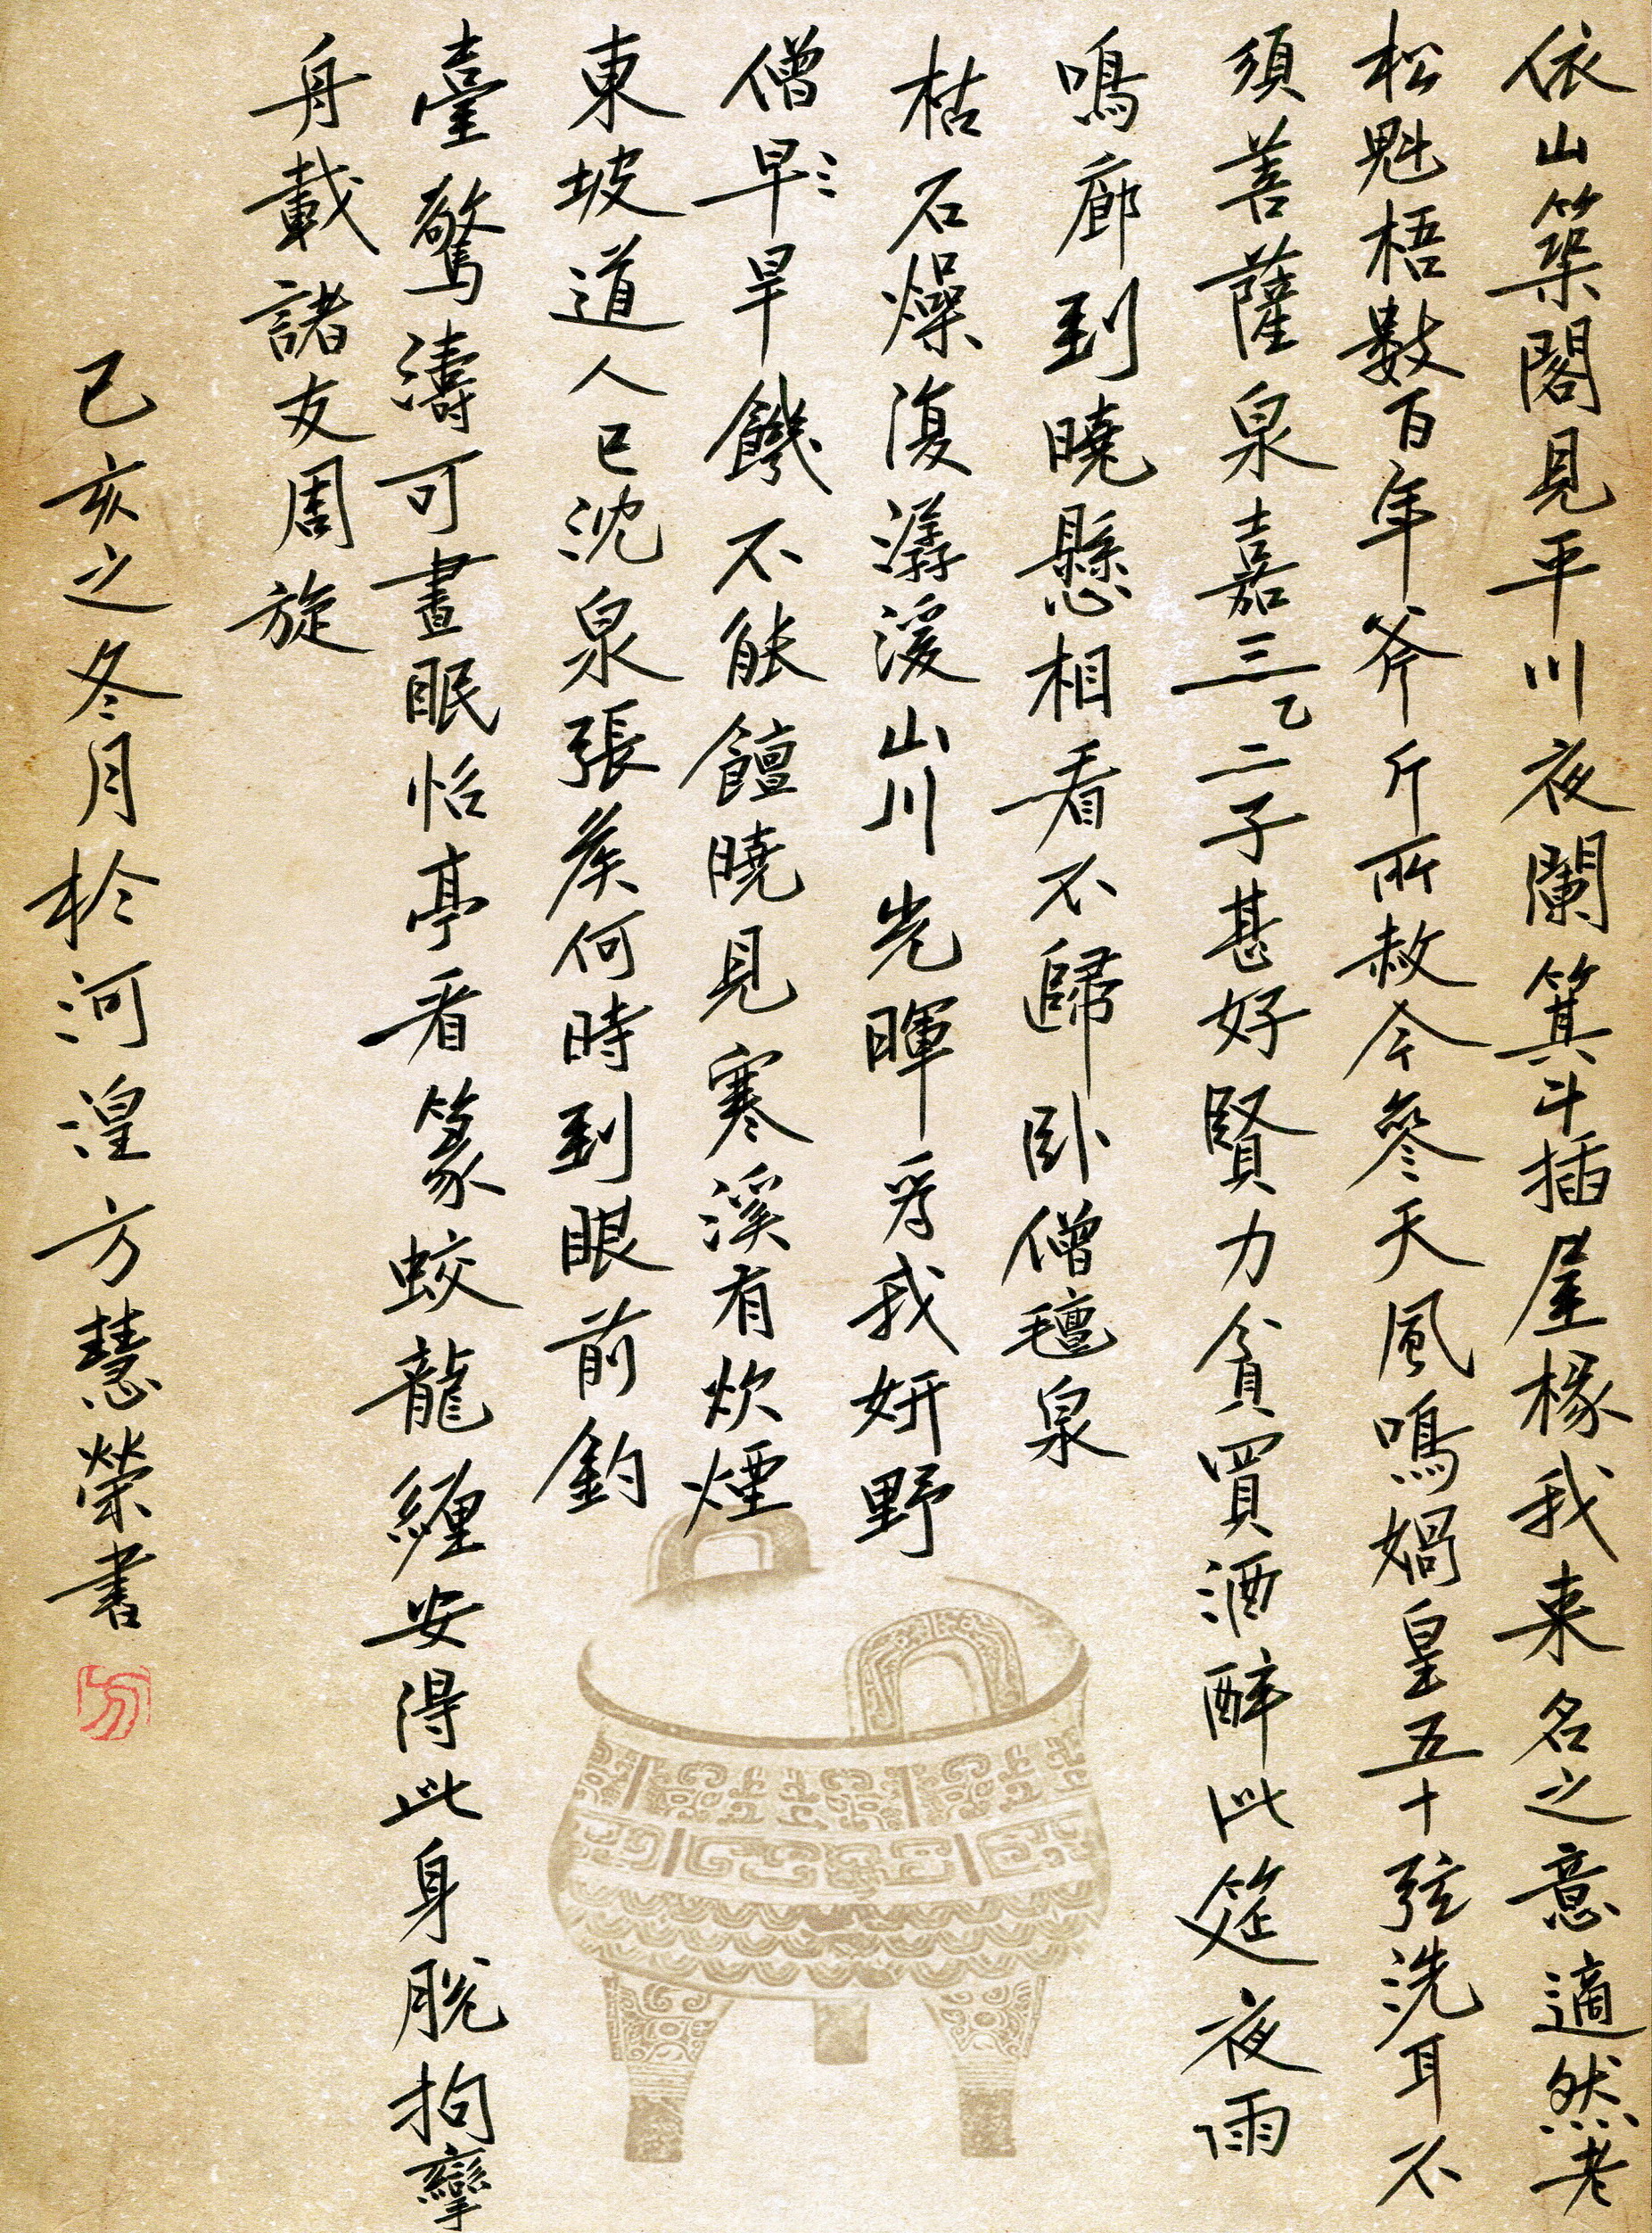 依山築閣見平川夜闌箕斗插屋椽我來名之意適然老
松魁梧數百年斧斤所赦今參天風鳴媧皇五十弦洗耳不
須菩薩泉嘉三乙二子甚好賢力貧買酒醉此筵夜雨
鳴廊到曉懸相看不歸臥僧氊泉
枯石燥復潺湲山川光暉爲我妍野
僧早⺀旱饑不能饘曉見寒溪有炊煙
東坡道人已沈泉張矦何時到眼前釣
臺驚濤可晝眠怡亭看篆蛟龍纏安得此身脫拘攣
舟載諸友周旋
己亥之冬月於河湟方慧榮書
方